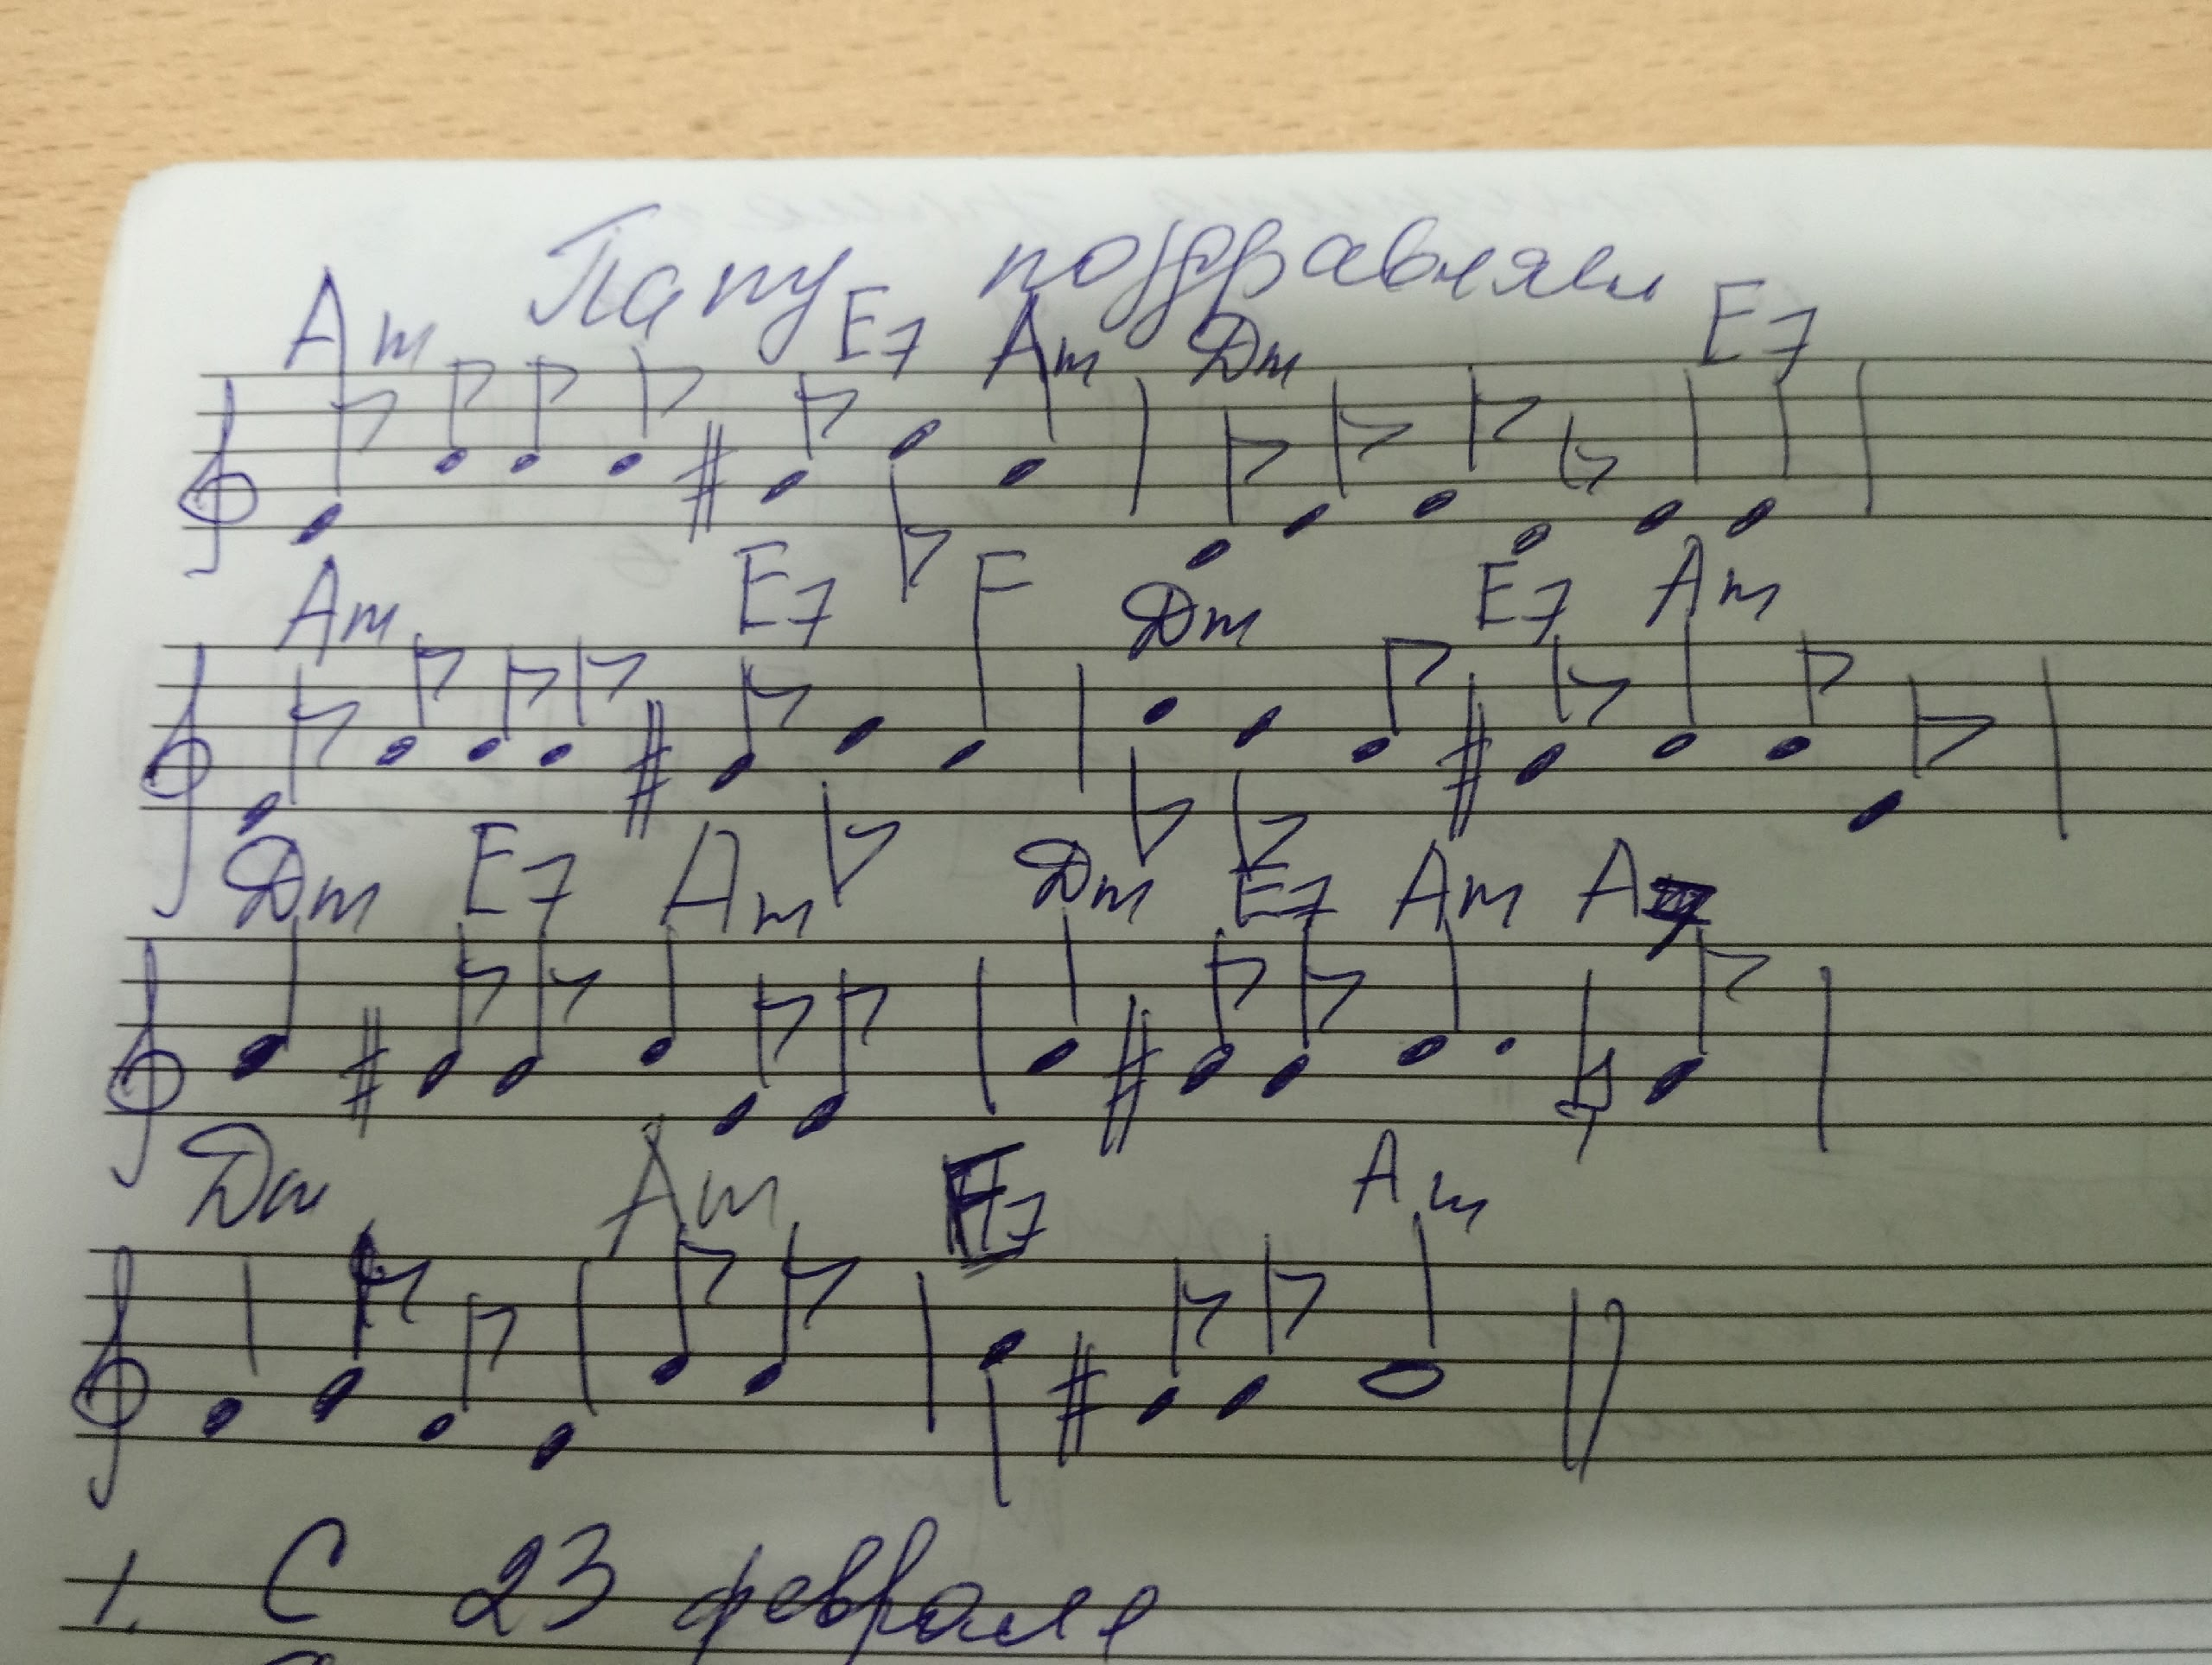 Папу поздравляем
Am E7 Am Dm E7
Am E7 F Dm E7 Am
Dm E7 Am Dm E7 Am A7
Dm Am E7 Am
1. С 23 февраля